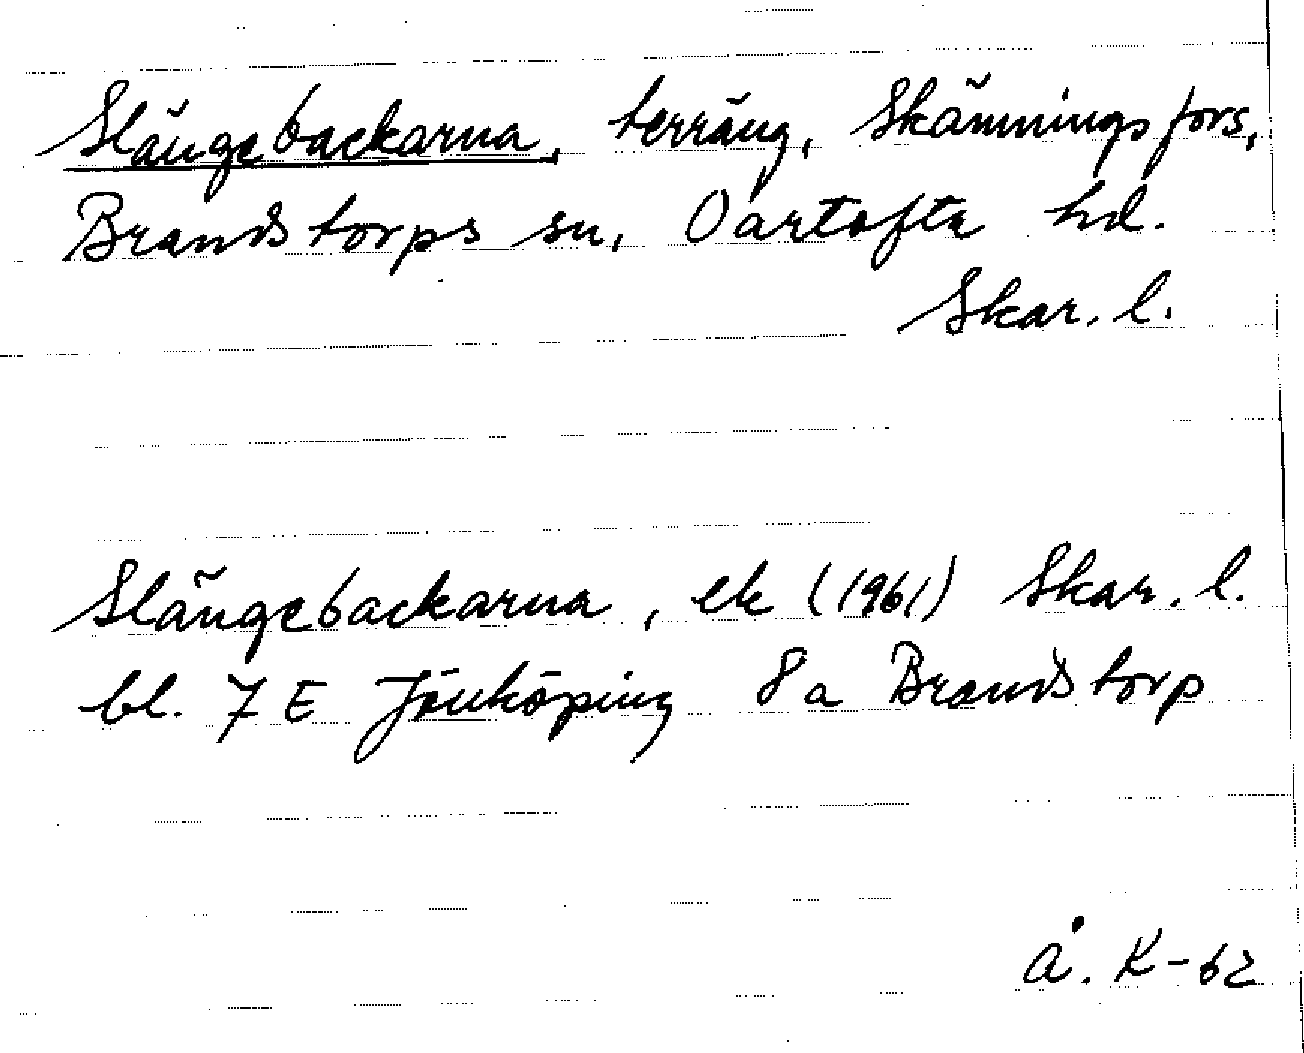 Slängebackarna, terräng, Skämningsfors,
Brandstorps sn, Vartofta hd.
Skar. l.
Slängebackarna, ek (1961) Skar. l.
bl. 7 E Jönköping 8a Brandstorp
Å. K-62